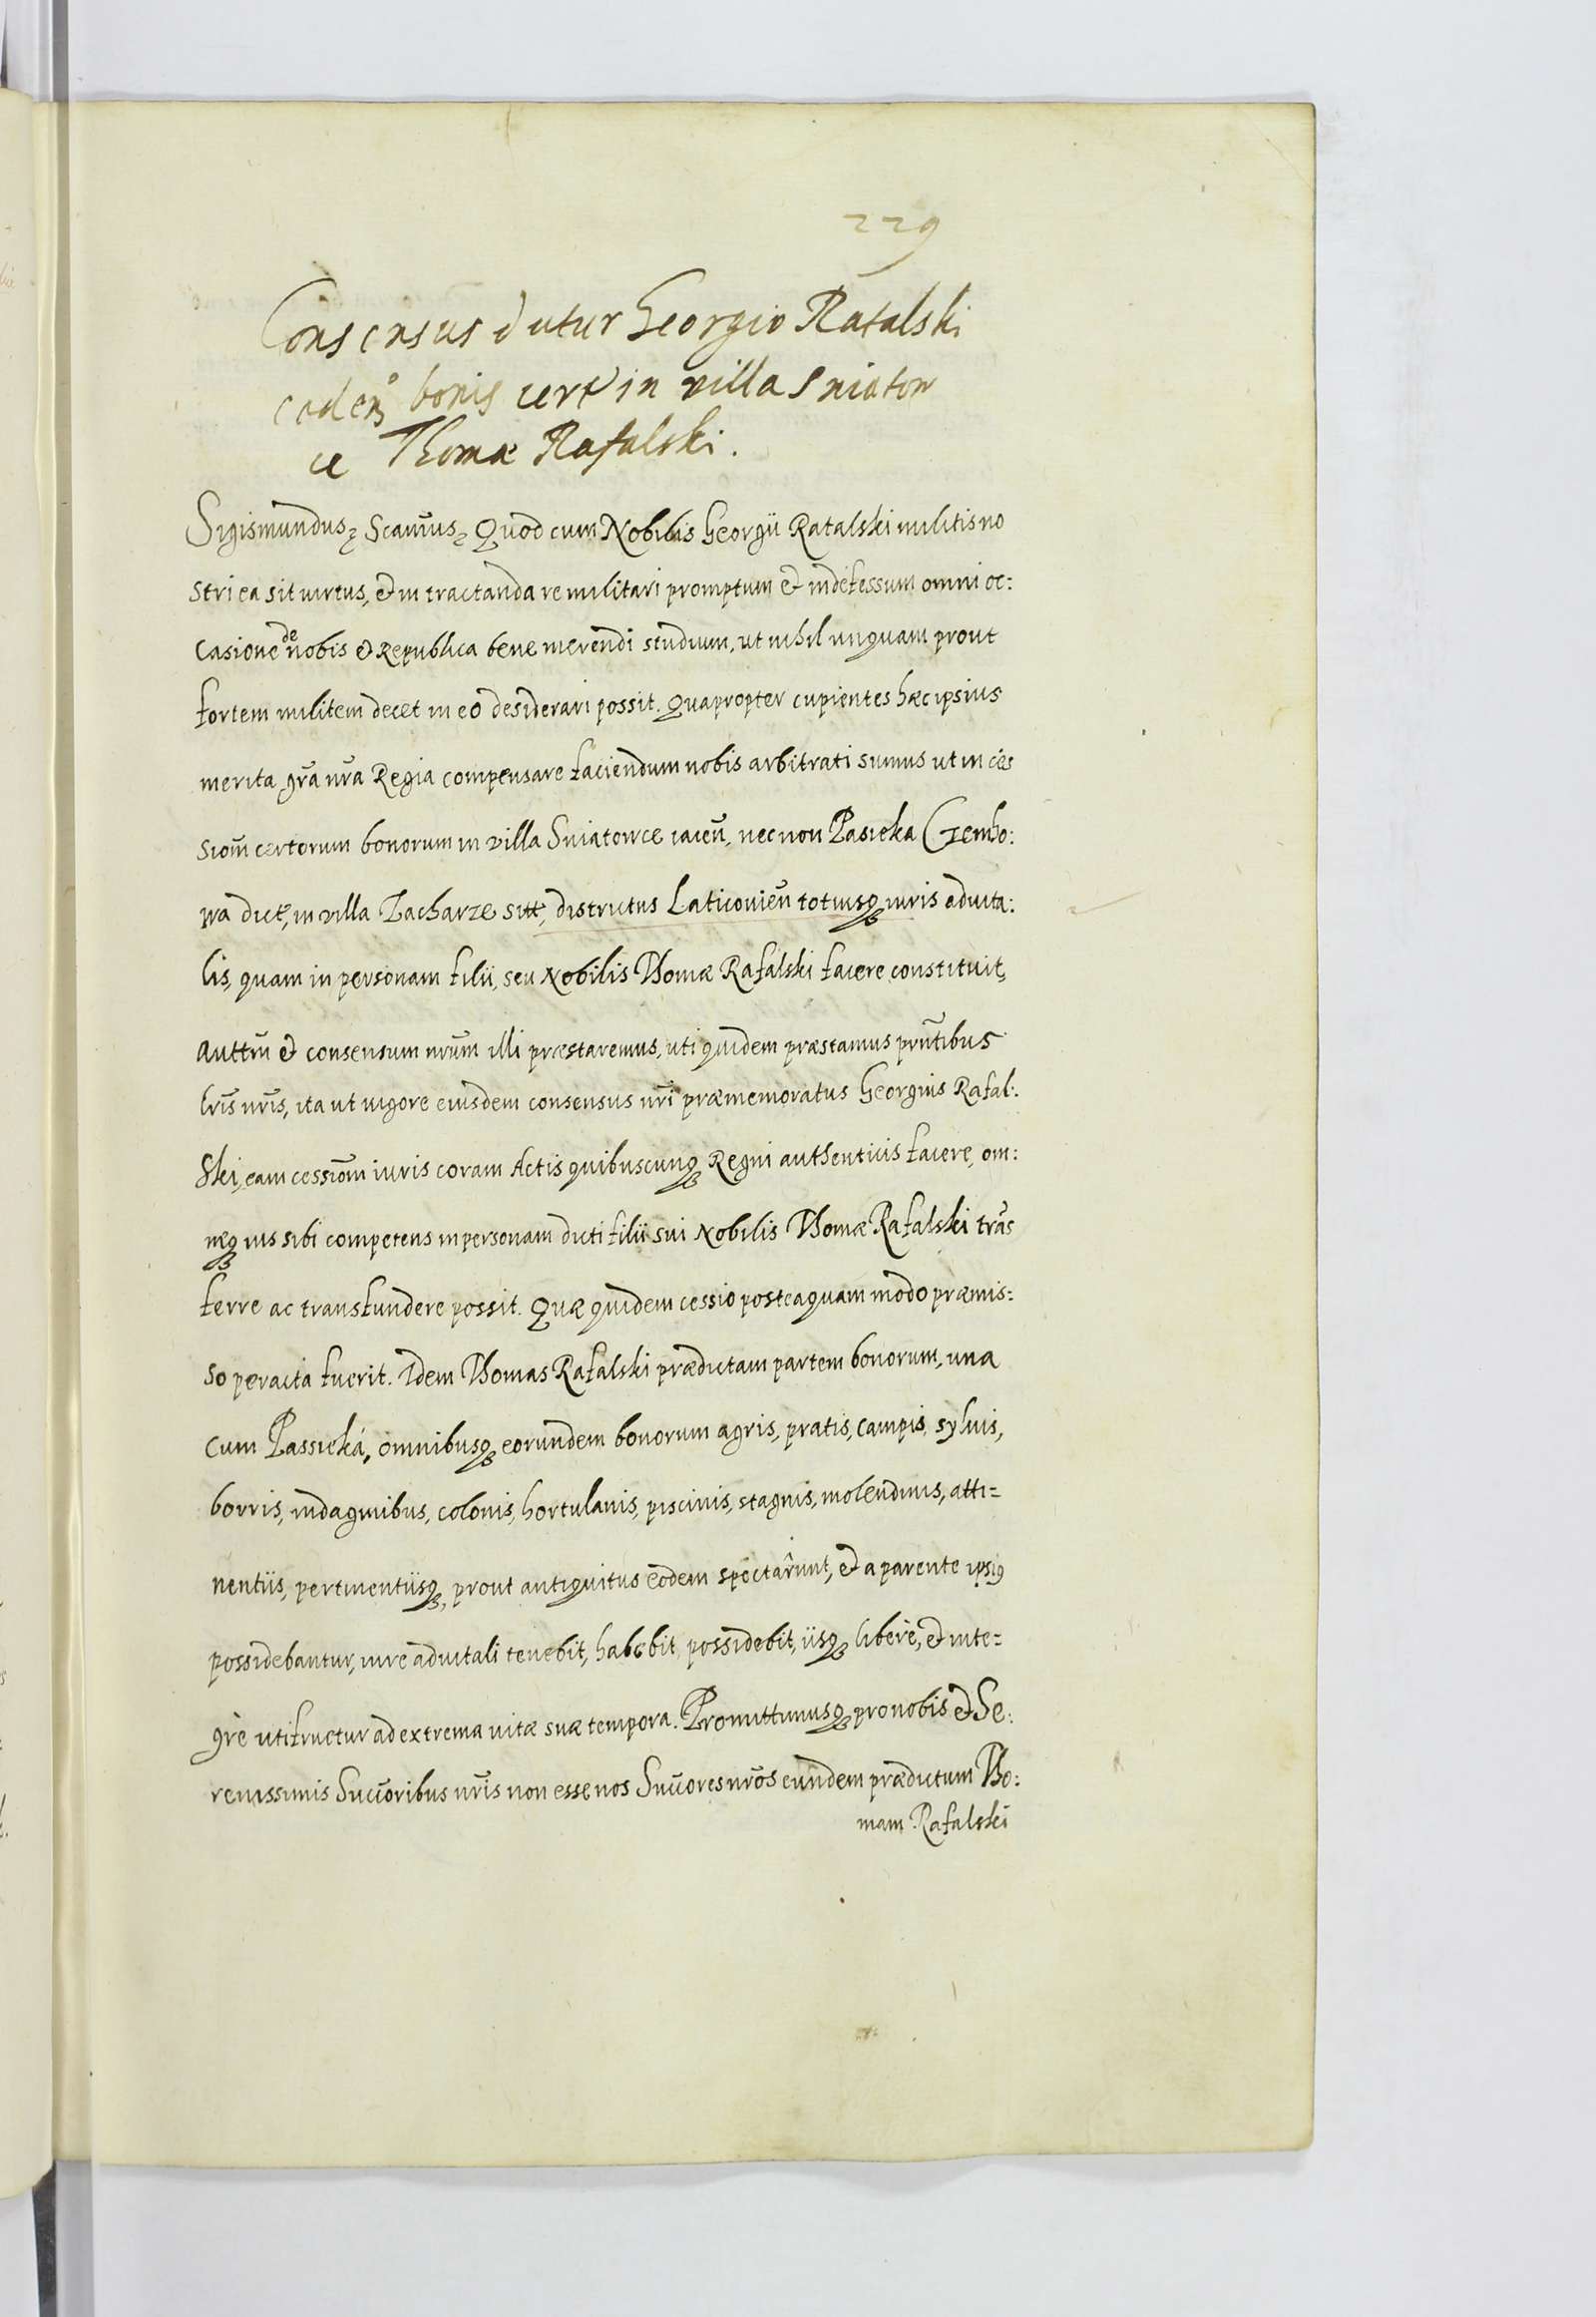 229
Consensus datur Georgio Rafalski
cedendi bonis cert in villa Sniatow
ce Thomæ Rafalski.
Sigismundus, Scimus, Quod cum Nobilis Georgii Rafalski militis no
stri ea sit virtus, et in tractanda re militari promptum et indefessum omni oc:
casione de nobis et Republica bene merendi studium, ut nihil unquam prout
fortem militem decet in eo desiderari possit. Quapropter cupientes hæc ipsius
merita gra nra Regia compensare faciendum nobis arbitrati sumus ut in ces
siom certorum bonorum in villa Sniatowce iacen, nec non Pasieka Czembo:
wa dict, in villa Zacharze sitt, districtus Laticouien totiusq iuris aduita:
lis, quam in personam filii, seu Nobilis Thomæ Rafalski facere constituit,
auttm et consensum nrum illi præstaremus, uti quidem præstamus prntibus
lris nris, ita ut vigore eiusdem consensus nri præmemoratus Georgius Rafal:
ski, eam cessiom iuris coram Actis quibuscunq Regni authenticis facere, om:
neq ius sibi competens in personam dicti filii sui Nobilis Thomæ Rafalski tras
ferre ac transfundere possit. Quæ quidem cessio posteaquam modo præmis=
so peracta fuerit. Idem Thomas Rafalski prædictam partem bonorum, una
cum Passieká, omnibusq eorundem bonorum agris, pratis, campis, syluis,
borris, indaginibus, colonis, hortulanis, piscinis, stagnis, molendinis, atti=
nentiis, pertinentiisq, prout antiquitus eodem spectarunt, et a parente ipsiq
possidebantur, iure aduitali tenebit, habebit, possidebit, iisq liberè, et inte=
grè utifructur ad extrema vitæ suæ tempora. Promittimusq pro nobis et Se:
renissimis Succoribus nris non esse nos Succores nros eundem prædictum Tho:
mam Rafalski